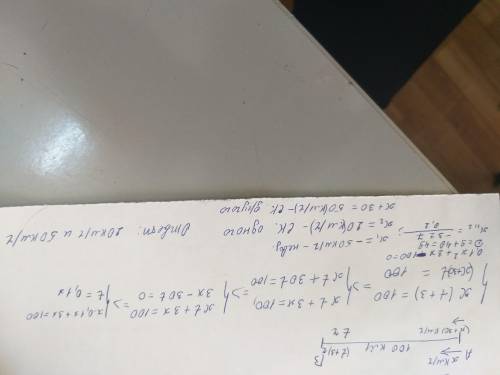 A x км/ч B
100 км (t+3) ч
(x+30) км/ч t ч
x(t+3) = 100 => xt+3x=100, => xt+3x=100 => x·0,1x+3x=100
= 100 xt+30t=100 3x-30t=0 t=0,1x
0,1x²+3x-100=0
D=9+40=49
x₁,₂ = (-3±7)/0,2
x₁ = -50км/ч -
x₂ = 20(км/ч) - ск. одного
x+30 = 50(км/ч) - ск. другого
Ответ: 20км/ч и 50км/ч